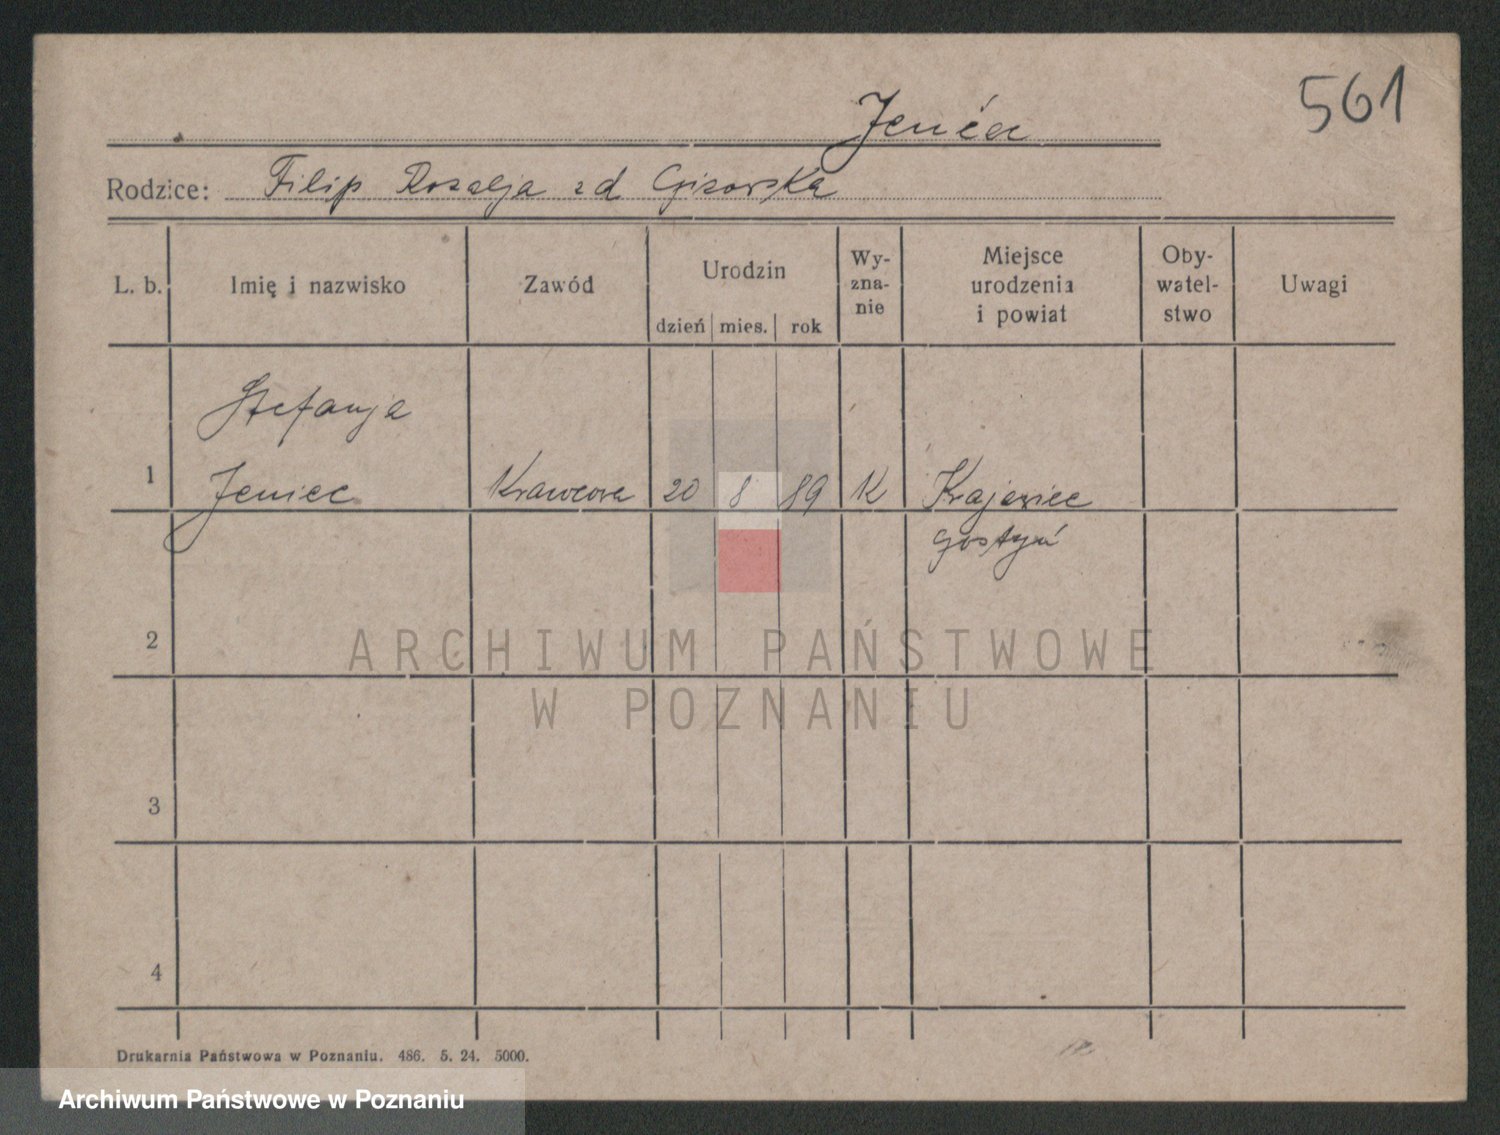 561
Jeniec
Rodzice: Filip Rozalja z d Gizorska
L. b. Imię i nazwisko Zawód Urodzin dzień mies. rok Wy-zna-nie Miejsce urodzenia i powiat Oby-watel-stwo Uwagi
Stefanja
1 Jeniec Krawcowa 20 8 89 K Krajewiec
Gostyń
2
ARCHIWUM PAŃSTWOWE
W POZNANIU
3
4
Drukarnia Państwowa w Poznaniu. 486. 5. 24. 5000.
Archiwum Państwowe w Poznaniu